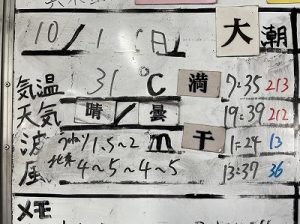 10/1 (日) 大潮
気温 31 ℃ 満 7:35 213
天気 晴/曇 19:39 212
波 うねり 1.5~2 m 干 1:24 13
風 北東 4~5~4~5 13:37 36
メモ